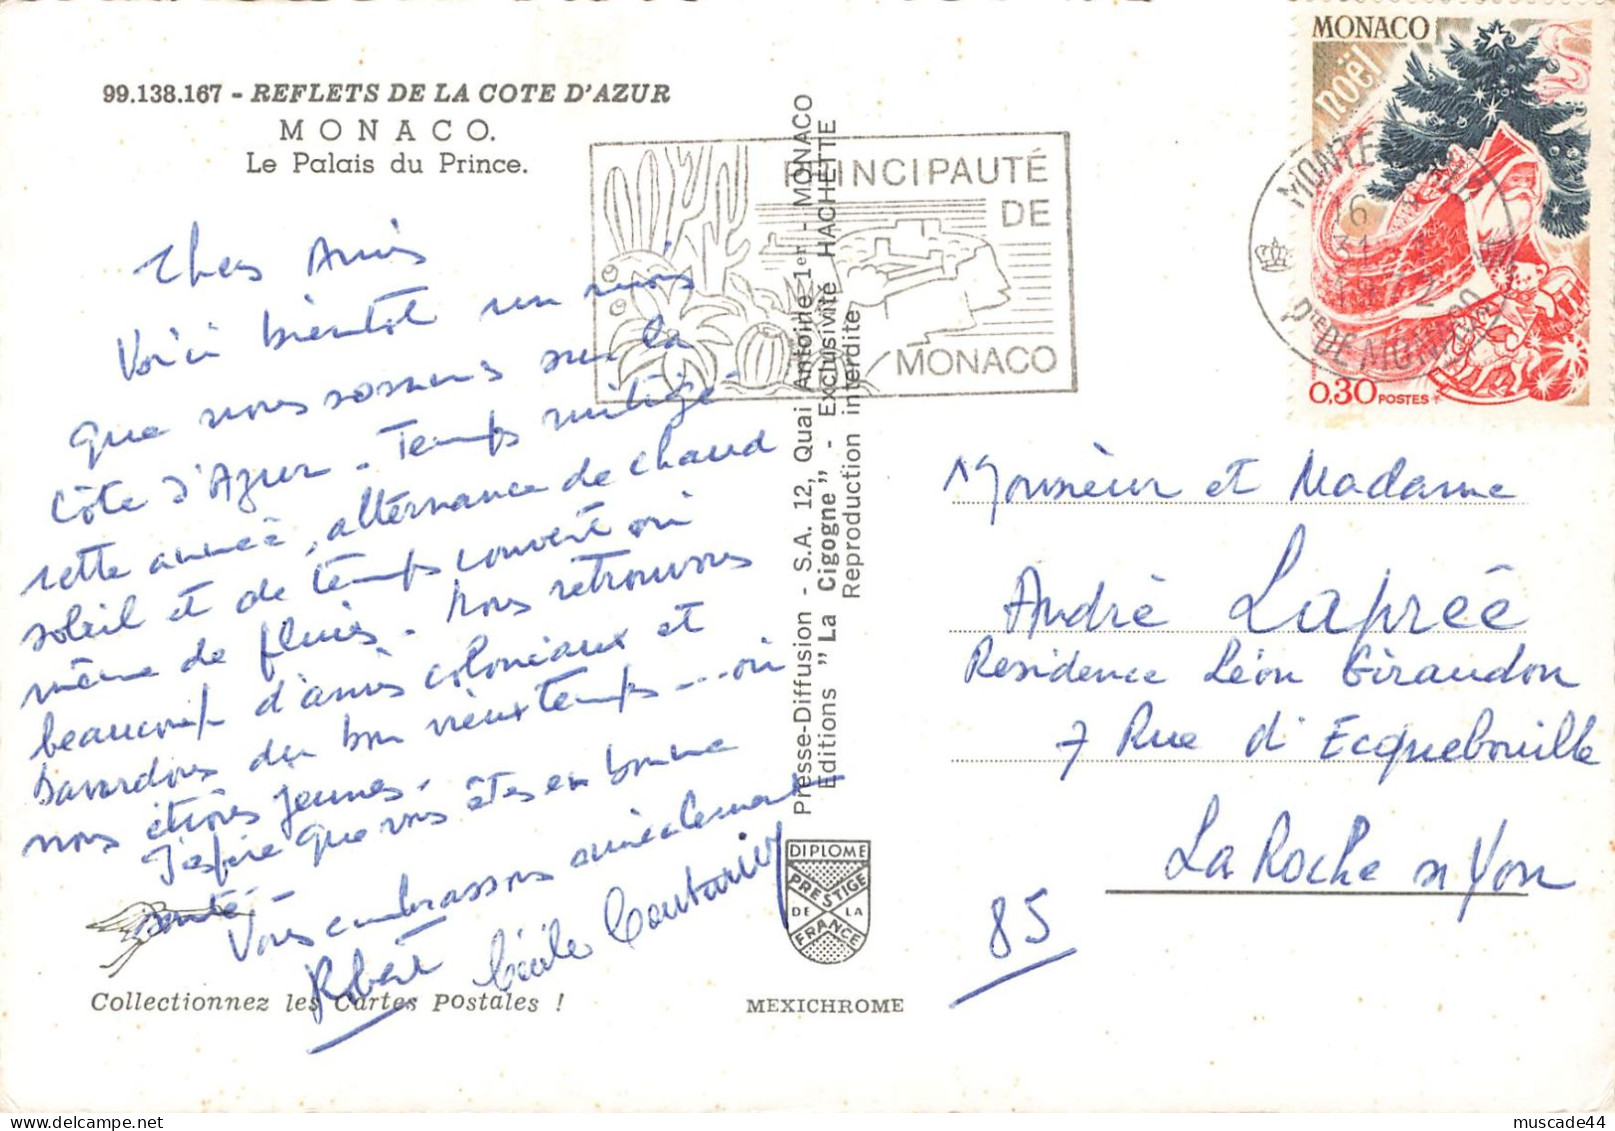 99.138.167 - REFLETS DE LA COTE D'AZUR
MONACO.
Le Palais du Prince.
Chers Amis
Voici bientôt un mois
que nous sommes sur la
Côte d'Azur - Temps mitigé
cette année, alternance de chaud
soleil et de temps couvert ou
même de pluies. Nous retrouvons
beaucoup d'amis coloniaux et
bavardons du bon vieux temps... où
nous étions jeunes.
J'espère que vous êtes en bonne
santé.
Vous embrassons amicalement
Robert Cécile
Collectionnez les Cartes Postales !
PRINCIPAUTÉ
DE
MONACO
Presse-Diffusion - S.A. 12, Quai Antoine 1er - MONACO
Editions "La Cigogne" - Exclusivité HACHETTE
Reproduction interdite
DIPLOME
PRESTIGE
DE LA
FRANCE
MEXICHROME
MONACO
noël
0,30 POSTES
MONTE
16
31
1972
PTE DE MONACO
Monsieur et Madame
André Laprée
Residence Léon Giraudon
7 Rue d'Ecquebouille
La Roche s/ Yon
85
muscade44